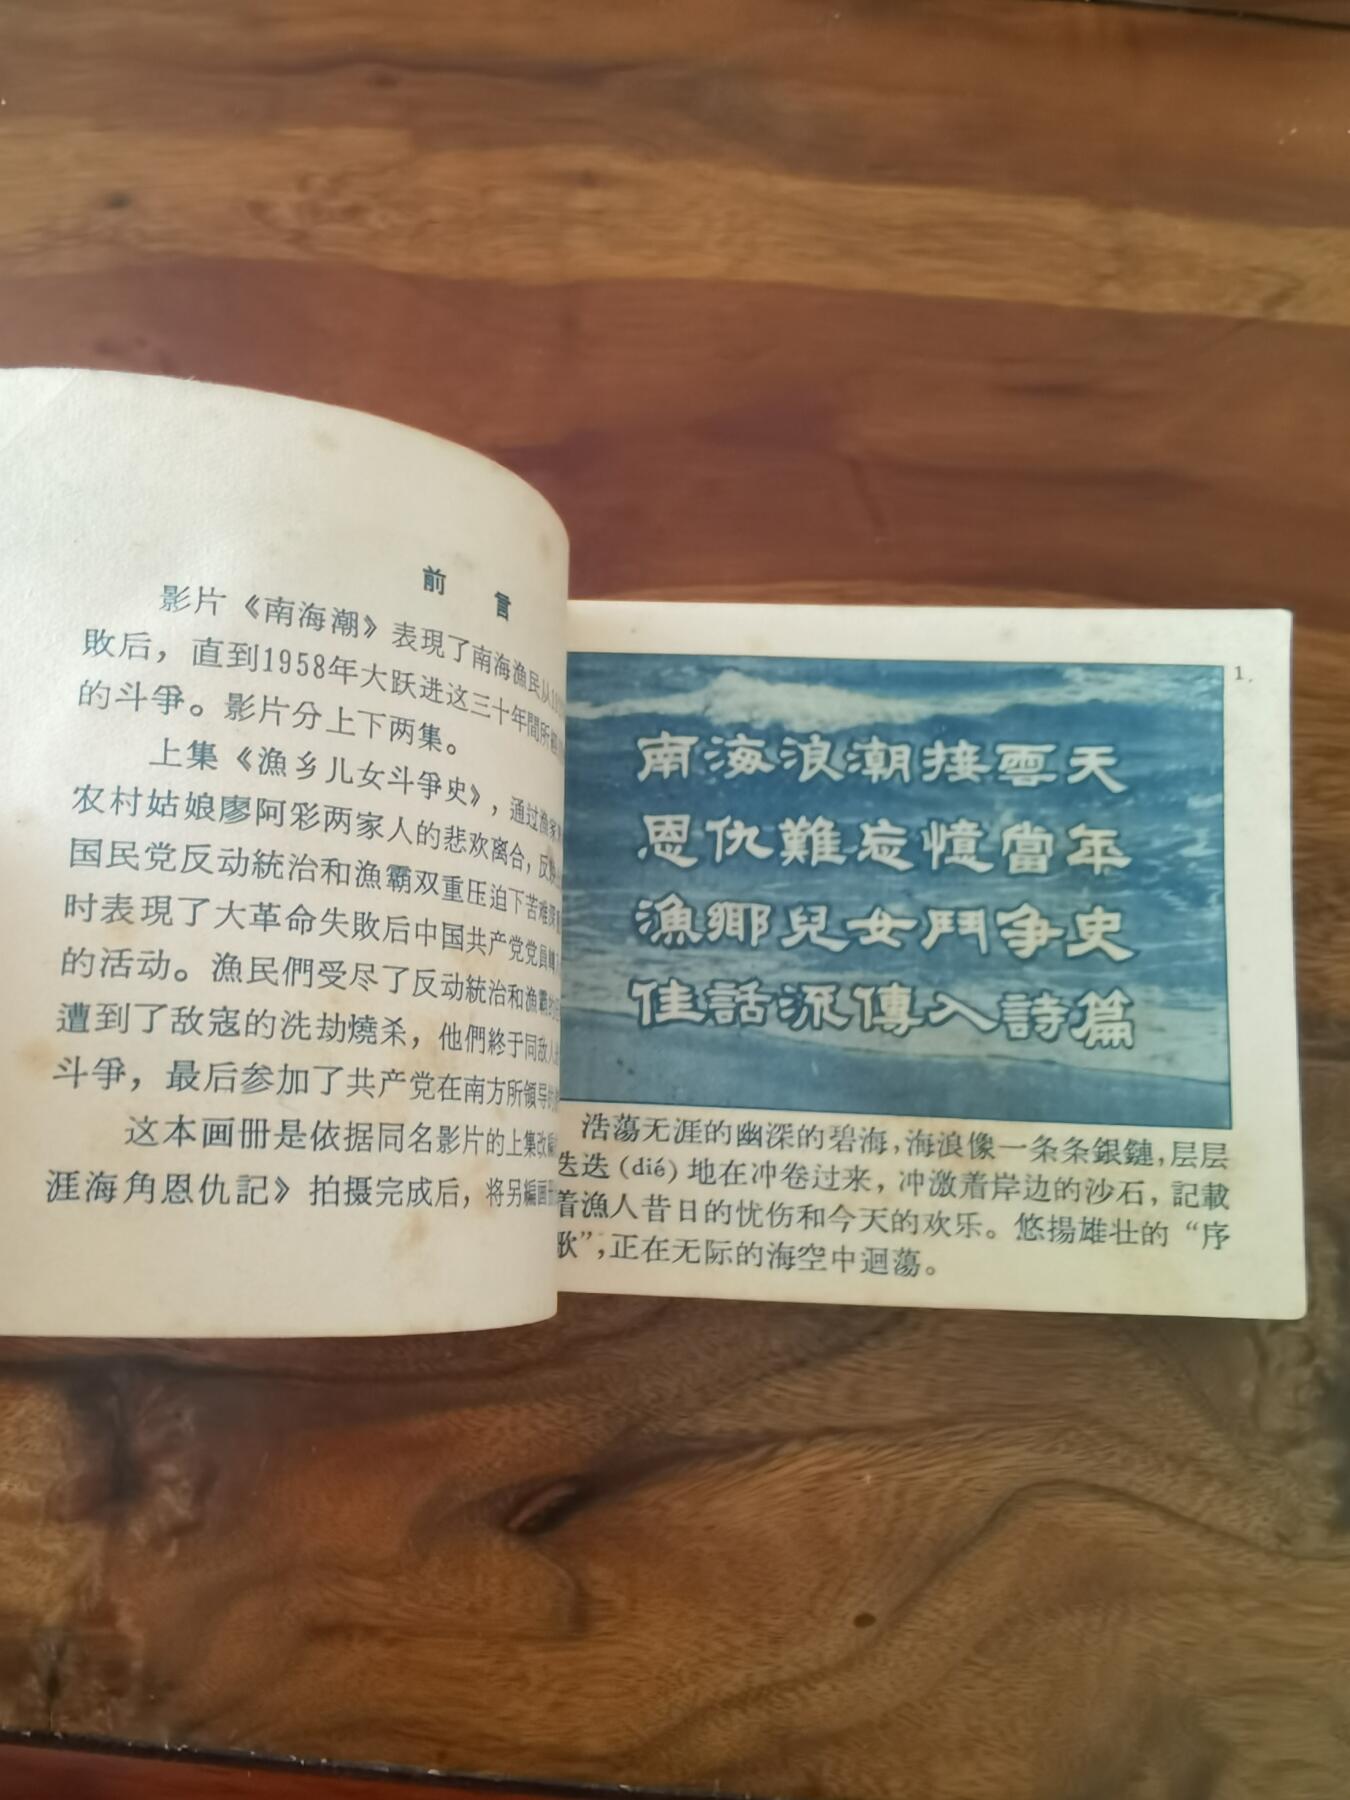 前言
影片《南海潮》表現了南海漁民从
敗后，直到1958年大跃进这三十年間所
的斗爭。影片分上下两集。
上集《漁乡儿女斗爭史》，通过漁家
农村姑娘廖阿彩两家人的悲欢离合，反
国民党反动統治和漁霸双重压迫下苦难
时表現了大革命失敗后中国共产党党員
的活动。漁民們受尽了反动統治和漁霸
遭到了敌寇的洗劫燒杀，他們終于同敌人
斗爭，最后参加了共产党在南方所領导
这本画册是依据同名影片的上集改編
涯海角恩仇記》拍摄完成后，将另編画册
1.
南海浪潮接雲天
恩仇難忘憶當年
漁鄉兒女鬥争史
佳話流傳入詩篇
浩蕩无涯的幽深的碧海，海浪像一条条銀鏈，层层
迭迭(dié)地在冲卷过来，冲激着岸边的沙石，記載
着漁人昔日的忧伤和今天的欢乐。悠揚雄壮的“序
歌”，正在无际的海空中迴蕩。